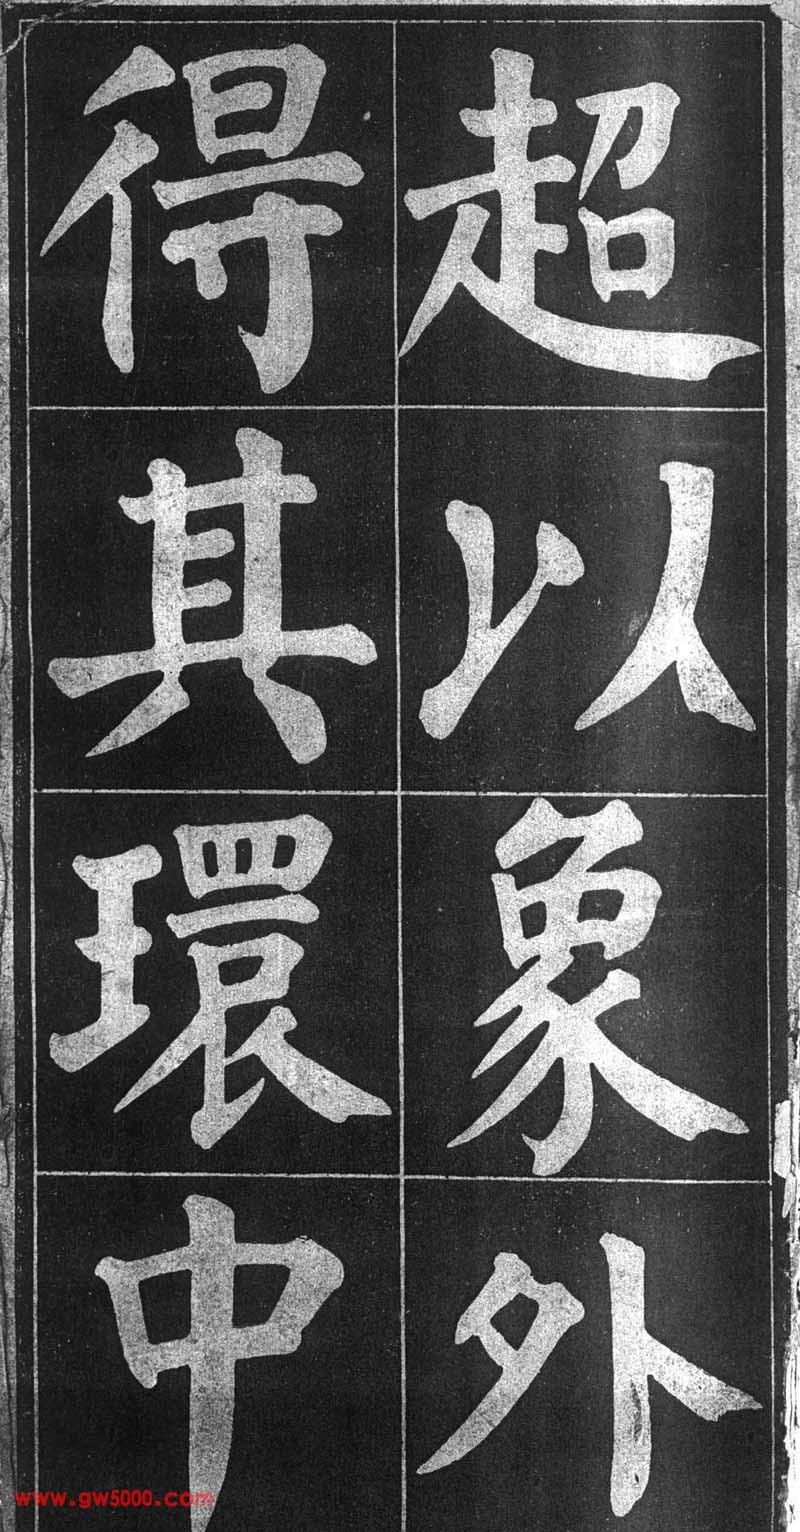 超以象外
得其環中
www.gw5000.com